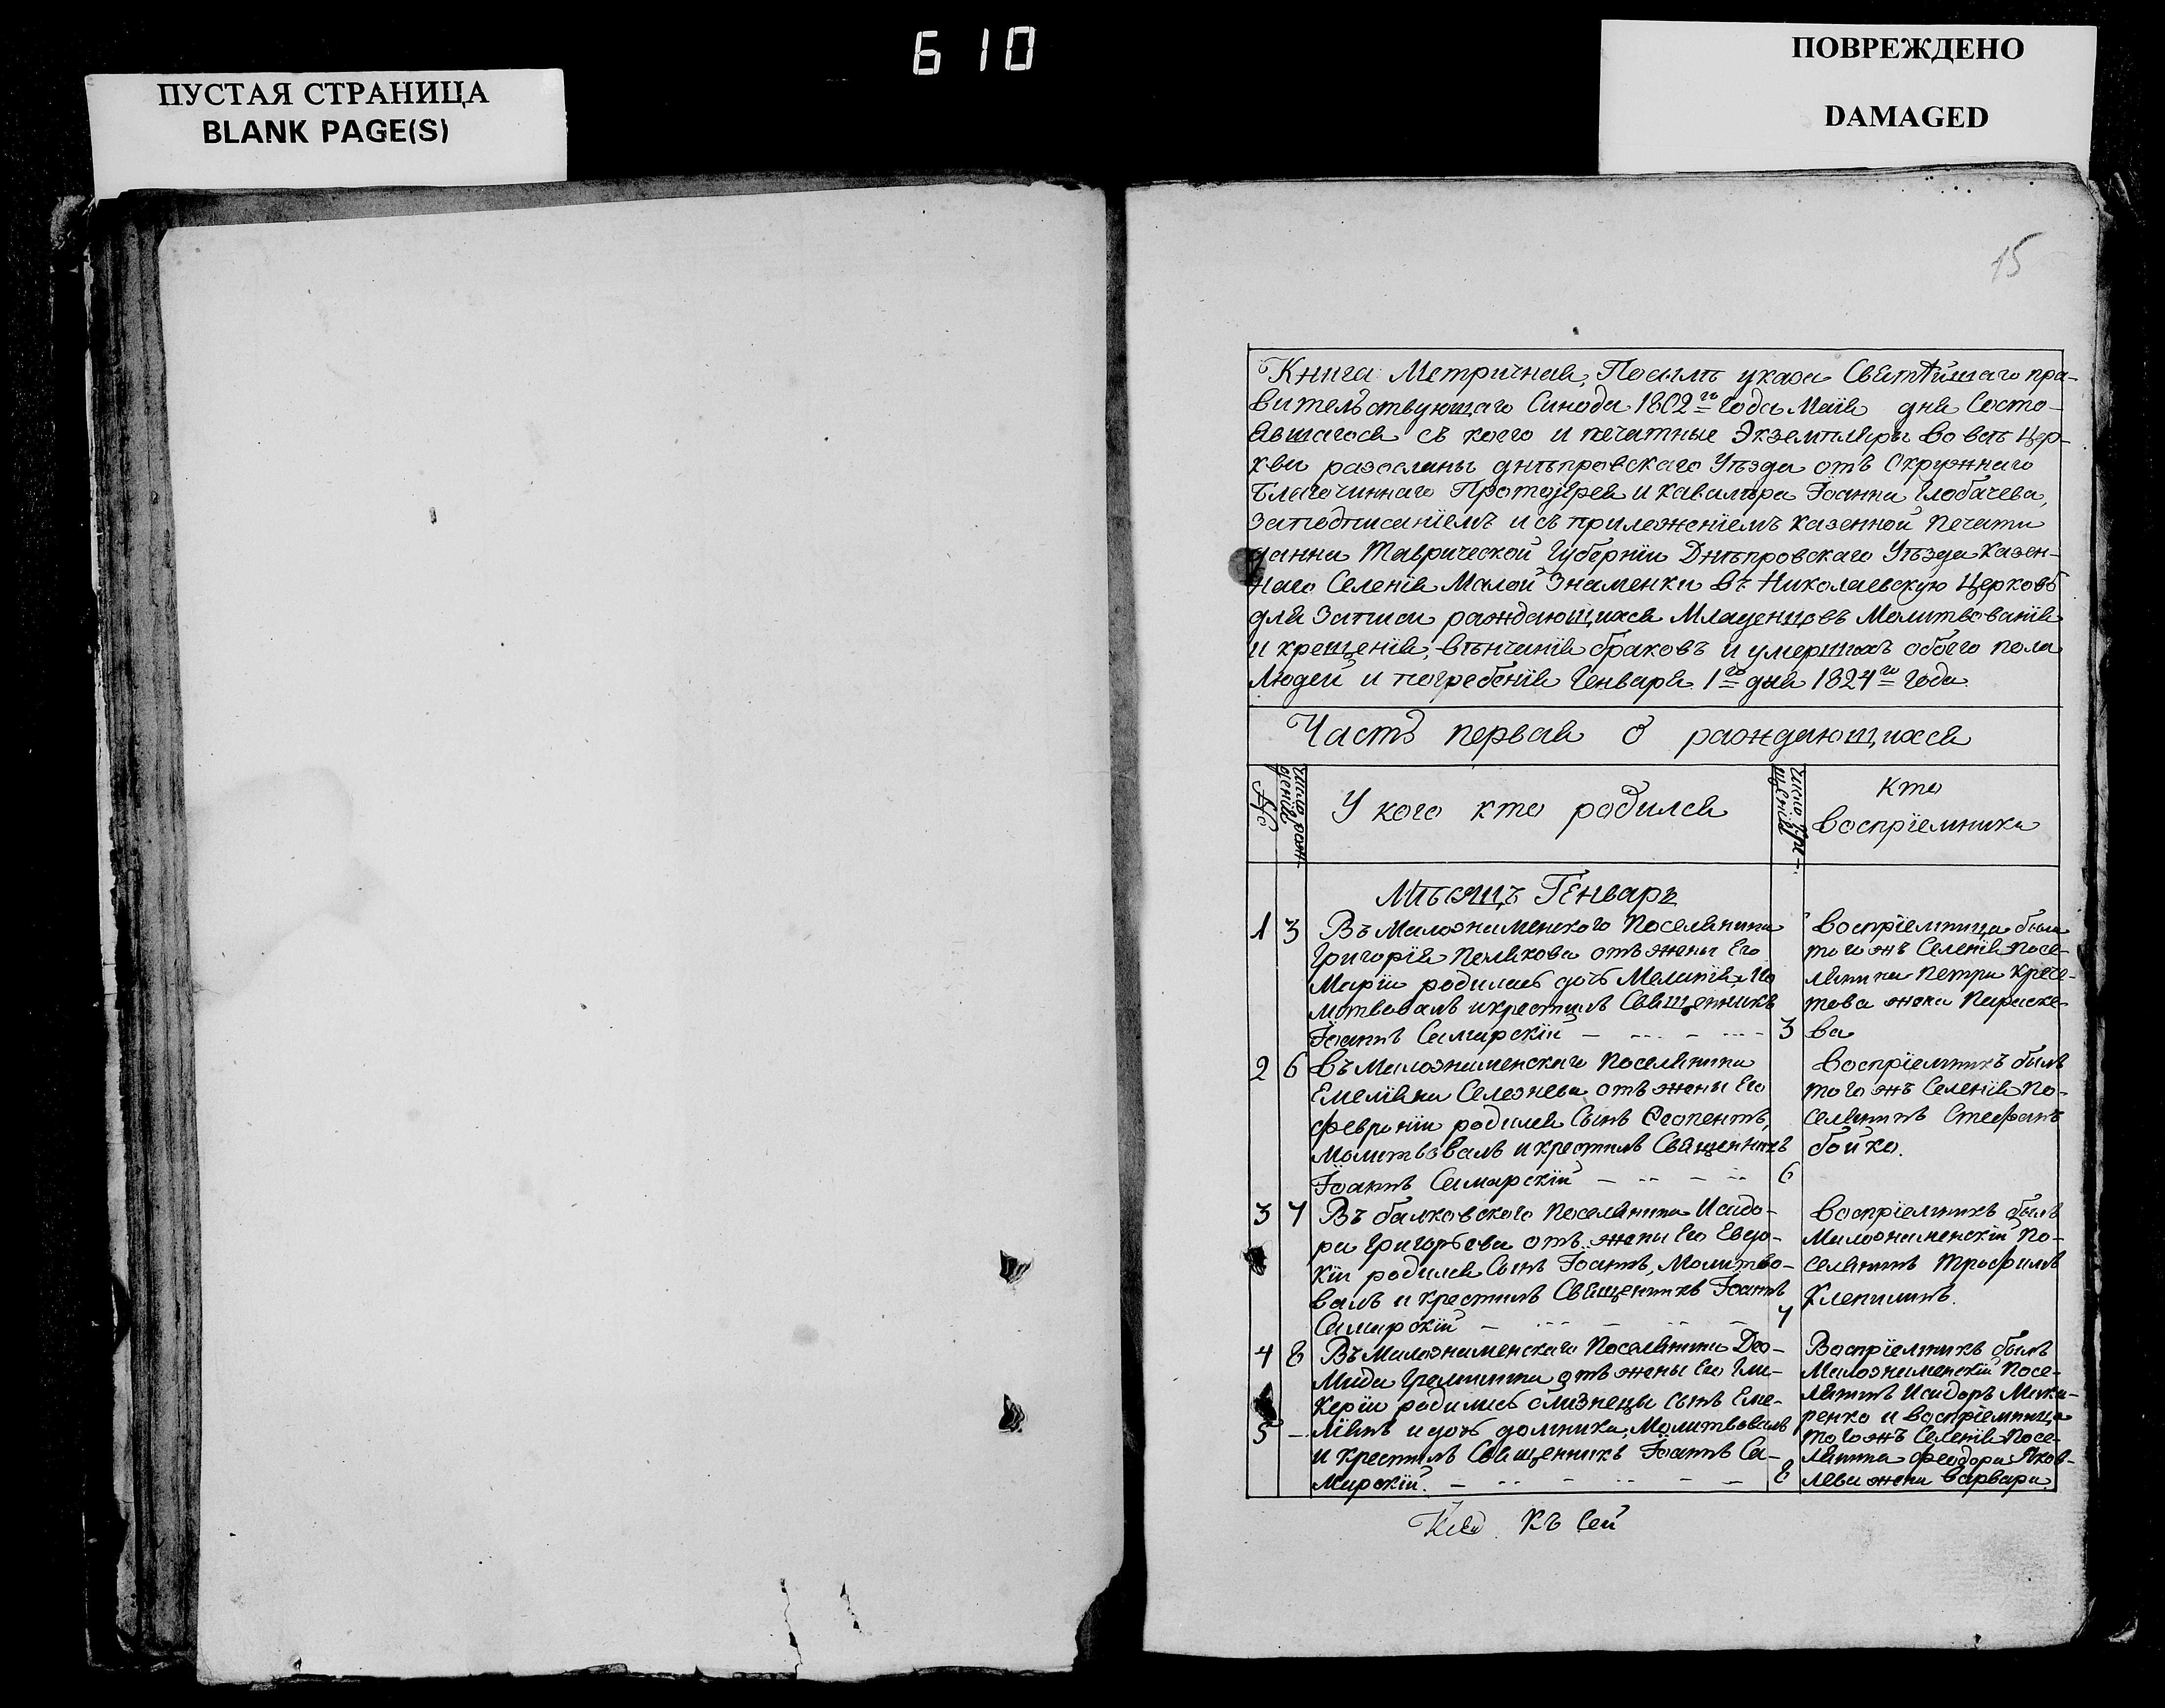 610
ПУСТАЯ СТРАНИЦА
BLANK PAGE(S)
ПОВРЕЖДЕНО
DAMAGED
15
Книга Метричная, Посилѣ указа Святѣйшаго пра-
вительствующаго Синода 1802го года Маїя дня Состо-
явшагося съ коего и печатные Экземпляры во всѣ Цер-
кви разосланы днѣпровскаго Уѣзда отъ Окружнаго
Благочиннаго Протоїерея и кавалѣра Іоанна Глобачева,
заподписанїемъ и съ приложенїемъ казенной печати
данна Таврической Губернїи Днѣпровскаго Уѣзда Казен-
наго Селенїя Малой Знаменки въ Николаевскую Церковь
для Записи раждающихся Младенцовъ Молитвованїя
и крещенїя, вѣнчанїя браковъ и умершихъ обоего пола
Людей и погребенїя Генваря 1го дня 1824го года.
Часть первая о раждающихся
№
число рож-
денїя
У кого кто родился
число кре-
щенїя
Кто
воспрїемники
Мѣсяцъ Генварь
1 3 Въ Малознаменского Поселянина
Григорїя Полякова отъ жены Его
Марїи родилась дочь Меланїя, Мо
литвовалъ икрестилъ Священникъ
Іоаннъ Самарскїй 3
Воспрїемница была
того жъ Селенїя Посе-
лянина Петра Крече-
това жена Параске-
ва
2 6 Въ Малознаменскаго Поселянина
Емелїяна Селезнева отъ жены Его
Февронїи родился Сынъ Ѳеопентъ,
Молитвовалъ икрестилъ Священникъ
Іоаннъ Самарскїй 6
Воспрїемникъ былъ
того жъ Селенїя По-
селянинъ Стефанъ
бойко.
3 7 Въ балковского Поселянина Исидо-
ра Григорьева отъ жены Его Евдо-
кїи родился Сынъ Іоаннъ, Молитво-
валъ и крестилъ Священникъ Іоаннъ
Самарскїй 7
Воспрїемникъ былъ
Малознаменскїй По-
селянинъ Трофимъ
Клепининъ.
4 8 Въ Малознаменскаго Поселянина Дїо-
мида отъ жены Его Гли-
керїи родились близнецы сынъ Еме-
5 лїянъ и дочь домника, Молитвовалъ
и крестилъ Священникъ Іоаннъ Са-
марскїй. 8
Воспрїемникъ былъ
Малознаменскїй Посе-
лянинъ Исидоръ Мака-
ренко и воспрїемница
того жъ Селенїя Посе-
лянина Феодора Яков-
лева жена Варвара.
Къ Сей